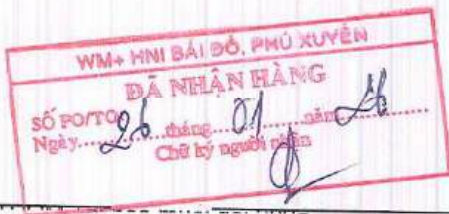 WM+ HNI BÃI ĐỖ, PHÚ XUYÊN
ĐÃ NHẬN HÀNG
SỐ PO/TO
Ngày..26..tháng..01..năm..26
Chữ ký người nhận